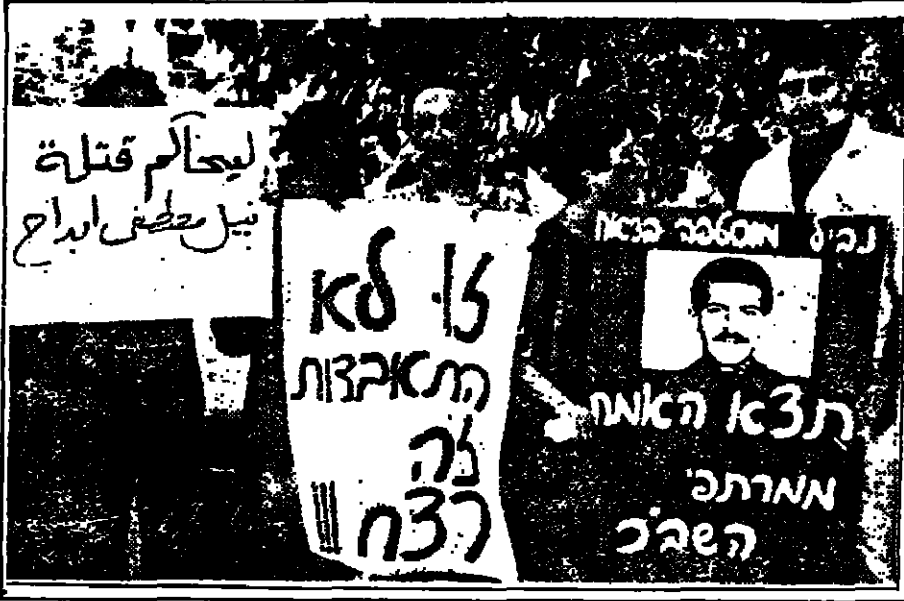 ليحاكم قتلة
نبيل مصطفى ابداح
זו לא
התאבדות
זה
רצח !!!
נביל מוסטפה
תצא האמת
ממרתפי
השב"כ